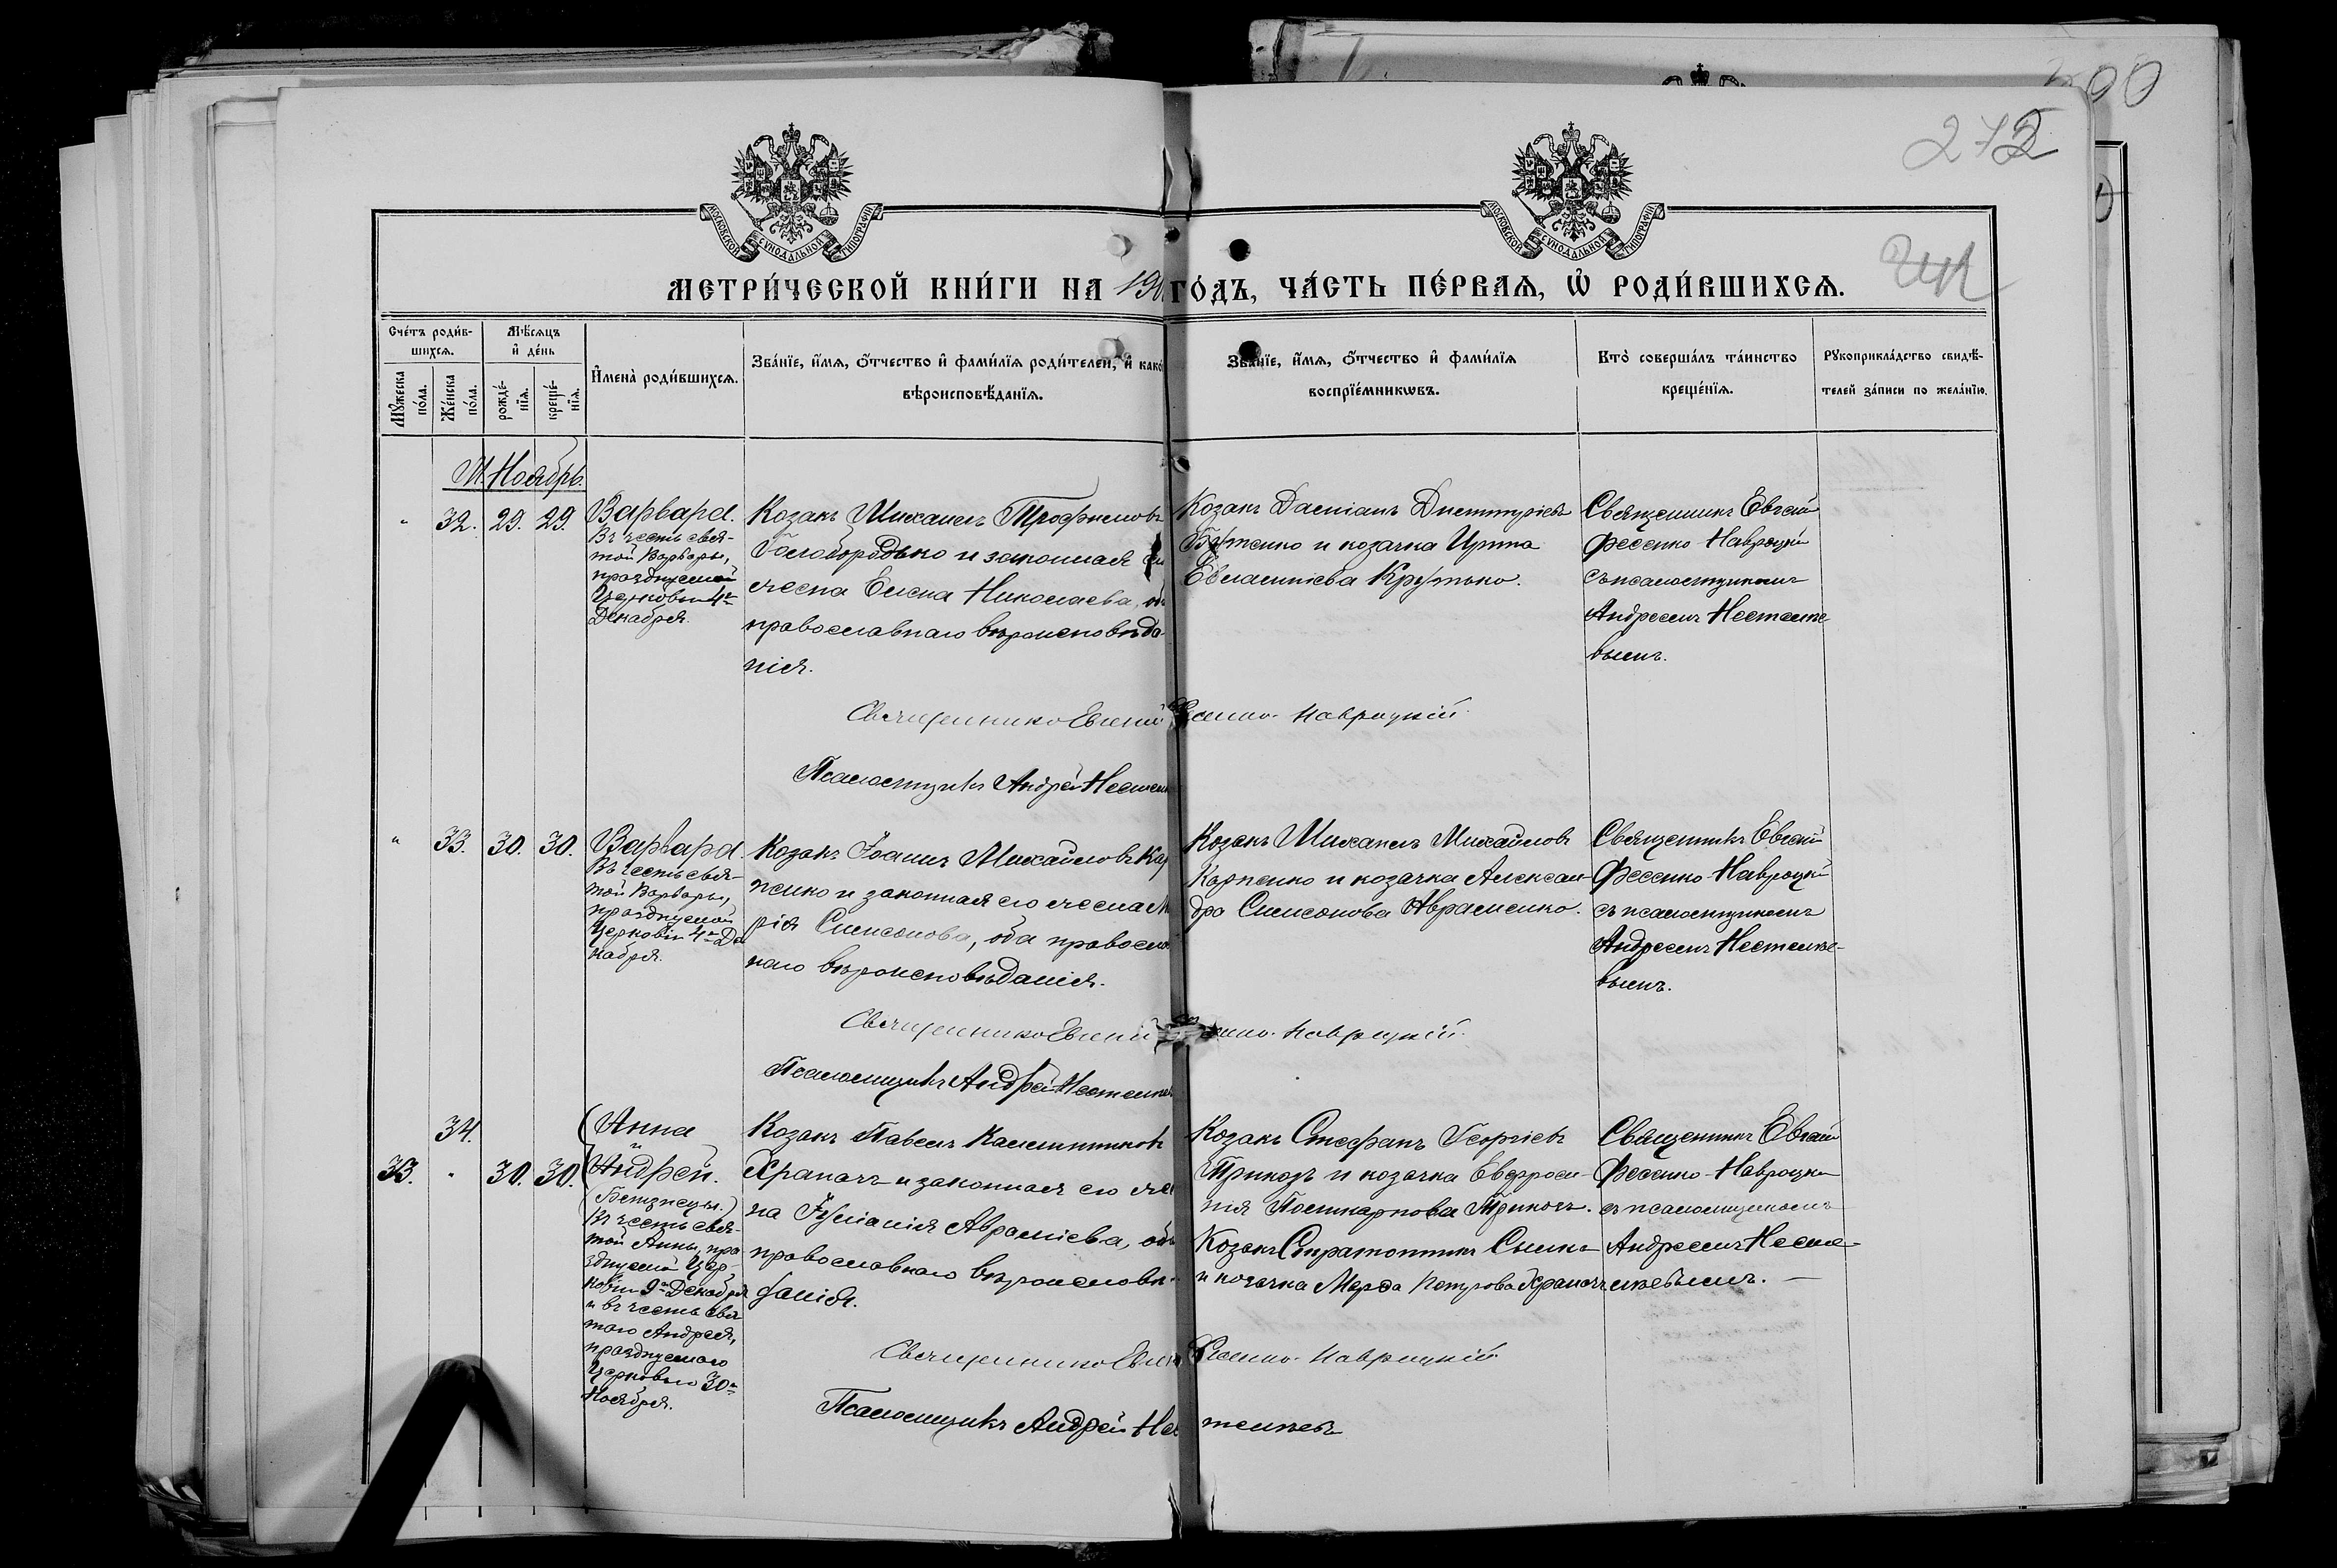 272
МОСКОВСКОЙ СУНОДАЛЬНОЙ ТИПОГРАФІИ
МОСКОВСКОЙ СУНОДАЛЬНОЙ ТИПОГРАФІИ
МЕТРИ́ЧЕСКОЙ КНИ́ГИ НА 190 ГО́ДЪ, ЧА́СТЬ ПЕ́РВАѦ, Ѡ҆ РОДИ́ВШИХСѦ.
Сче́тъ роди́в-
шихсѧ.
Мꙋ́жеска по́ла.
Же́нска по́ла.
Мѣ́сѧцъ
и҆ де́нь
рожде́-
нїѧ.
креще́-
нїѧ.
И҆мена̀ роди́вшихсѧ.
Зва́нїе, и҆́мѧ, ѻ҆́тчество и҆ фами́лїѧ роди́телей, и҆ како
вѣроисповѣ́данїѧ.
Зва́нїе, и҆́мѧ, ѻ҆́тчество и҆ фами́лїѧ
воспрїе́мникѡвъ.
Кто̀ соверша́лъ та́инство
креще́нїѧ.
Рꙋкоприкла́дство свидѣ́-
телей за́писи по жела́нїю.
М. Ноябрь.
" 32. 29. 29.
Варвара.
Въ честь свя-
той Варвары,
празднуемой
Церковію 4го
Декабря.
Козакъ Михаилъ Трофимовъ
Голобородько и законная
жена Елена Николаева, об
православнаго вѣроисповѣда-
нія.
Козакъ Даміанъ Димитріевъ
и козачка Ирина
Евлампіева Крутько.
Священникъ Евгеній
Фесенко-Навроцкій
съ псаломщикомъ
Андреемъ
вымъ.
Священникъ Евгеній Фесенко-Навроцкій
Псаломщикъ Андрей
" 33. 30. 30.
Варвара.
Въ честь свя-
той Варвары,
празднуемой
Церковію 4го Де
кабря.
Козакъ Іоаннъ Михайловъ Кар
пенко и законная его жена М
рія Симеонова, оба правосла
наго вѣроисповѣданія.
Козакъ Михаилъ Михайловъ
Карпенко и козачка Алексан-
дра Симеонова Авраменко.
Священникъ Евгеній
Фесенко-Навроцкій
съ псаломщикомъ
Андреемъ
вымъ.
Священникъ Евгеній Фесенко-Навроцкій
Псаломщикъ Андрей
34.
33. " 30. 30.
Анна
и
Андрей.
(Близнецы.)
Въ честь свя-
той Анны, пра
зднуемой Цер-
ковію 9го Декабря
и въ честь свя
таго Андрея,
празднуемаго
Церковью 30го
Ноября.
Козакъ Павелъ Каллиниковъ
Храпачъ и законная его же
на Іуліанія Авраміева, оба
православнаго вѣроисповѣ-
данія.
Козакъ Стефанъ Георгіевъ
и козачка Евфроси-
нія Поликарпова
Козакъ Стратоникъ
и козачка Марфа Петрова Храпачъ
Священникъ Евгеній
Фесенко-Навроцкій
съ псаломщикомъ
Андреемъ
Священникъ Евген Фесенко-Навроцкій
Псаломщикъ Андрей